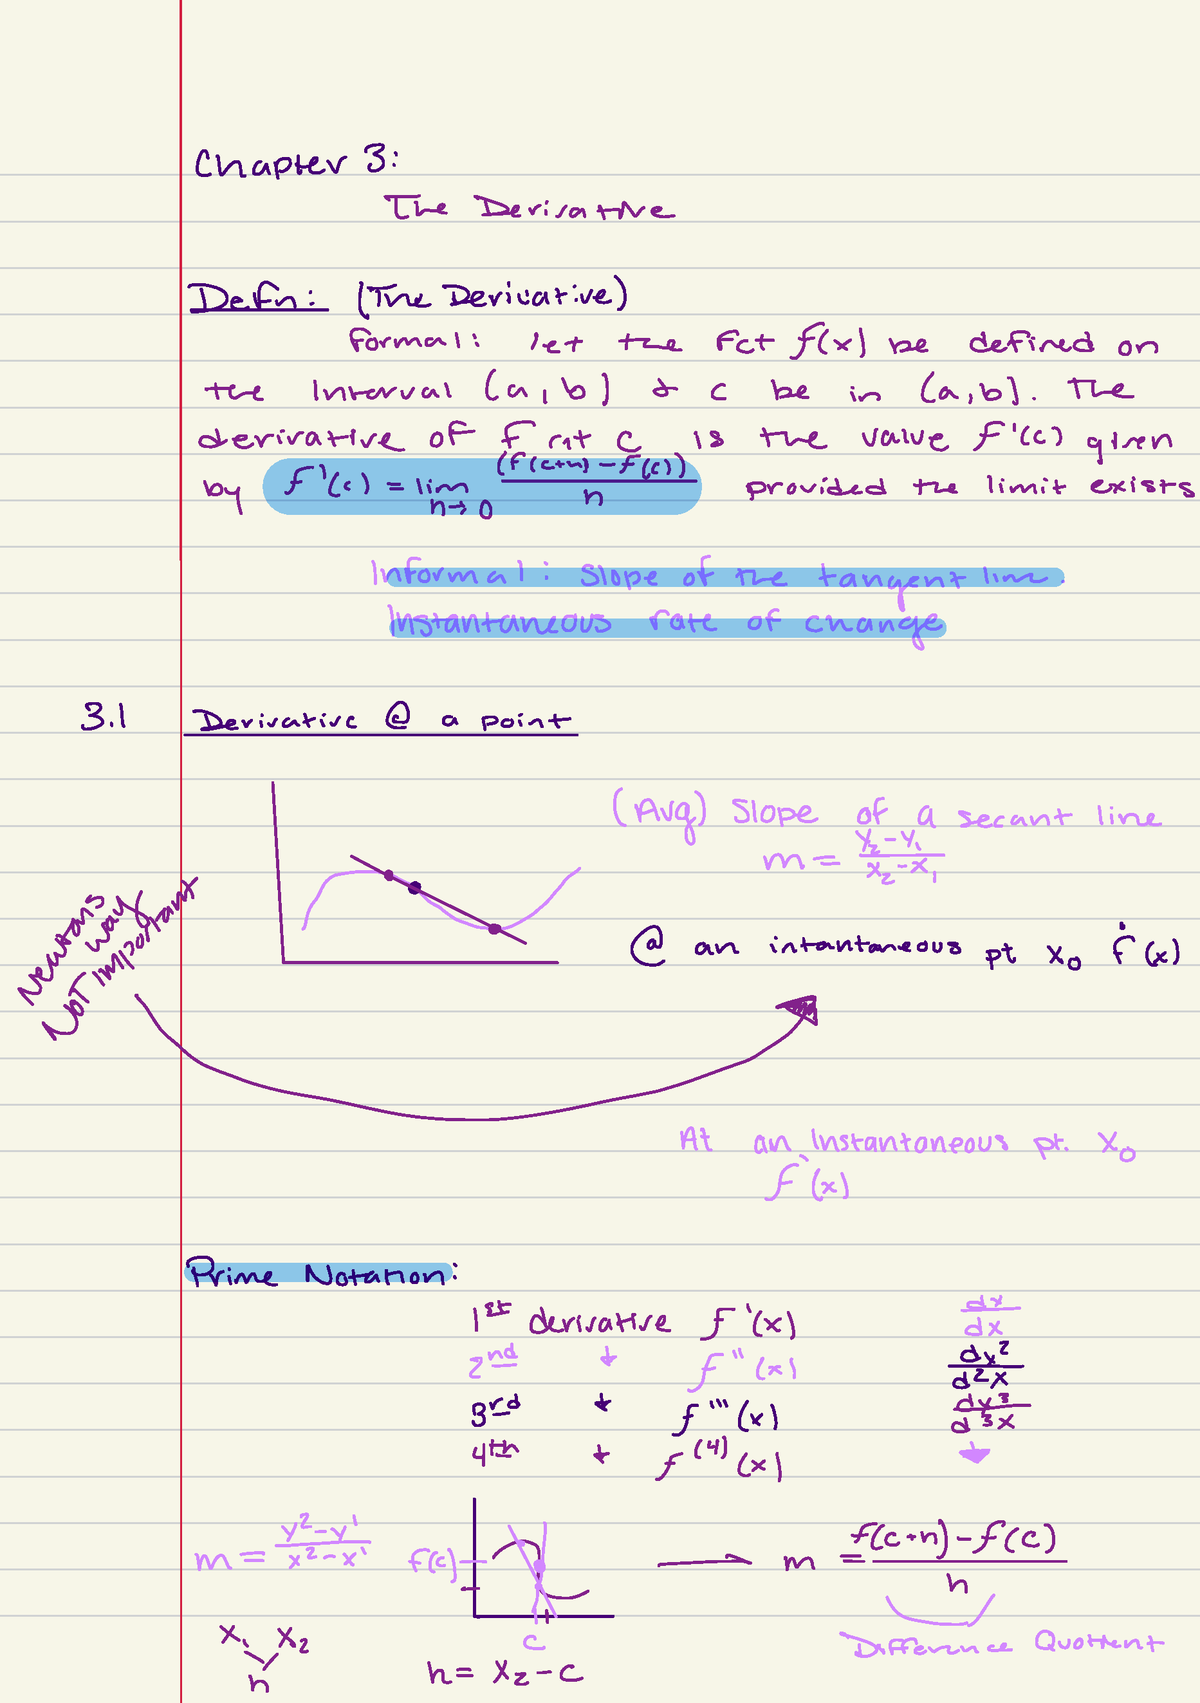 Chapter 3:
The Derivative
Defn: (The Derivative)
formal: let the fct f(x) be defined on
the Interval (a,b) & c be in (a,b). The
derivative of f at c is the value f'(c) given
by f'(c) = lim h→0 (f(c+h) - f(c))/h provided the limit exists
Informal: Slope of the tangent line.
Instantaneous rate of change
3.1 Derivative @ a point
(Avg) Slope of a secant line
m = (y₂-y₁)/(x₂-x₁)
Newtons
way
Not important
@ an intantaneous pt x₀ ḟ(x)
At an Instantaneous pt. x₀
f'(x)
Prime Notation:
1st derivative f'(x) dx/dx
2nd ↓ f''(x) dx²/d²x
3rd ↓ f'''(x) dx³/d³x
4th ↓ f⁽⁴⁾(x) ↓
m = (y²-y¹)/(x²-x¹) f(c) → m = (f(c+h)-f(c))/h
c
Difference Quotient
x₁ x₂
h
h = x₂-c